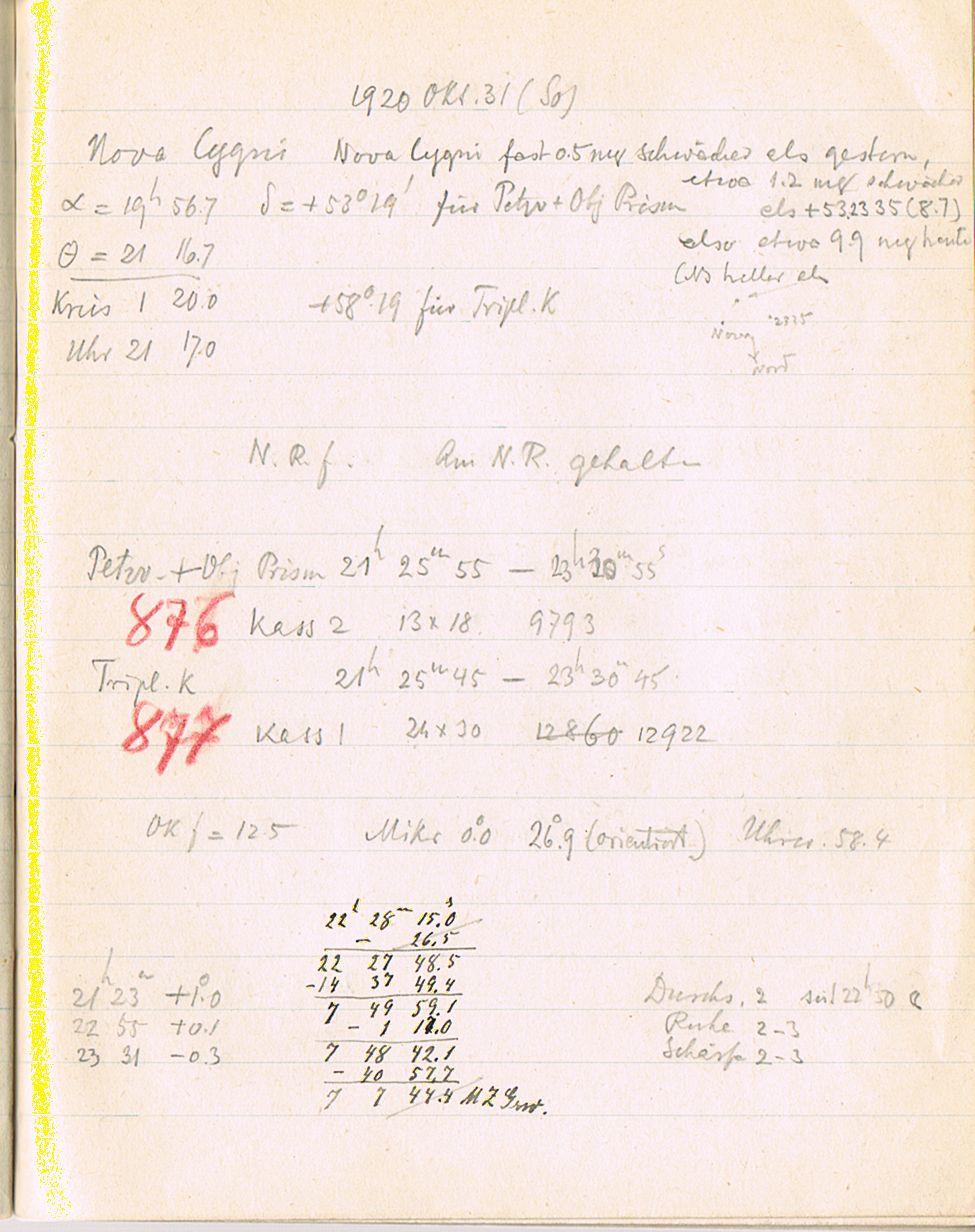 1920 Okt. 31 (So)
Nova Cygni Nova Cygni fast 0.5 mg schwächer als gestern,
etwa 1.2 mg schwächer
α = 19h 56.7 δ = +53°19' für Petzv + Obj Prism als +53,2335 (8.7)
θ = 21 16.7 also etwa 9.9 mg heute
heller als
Kreis 1 20.0 +58°19 für Tripl. K
Nova 2335
Uhr 21 17.0
Nord
N. R. f. Am N.R. gehalten
Petzv. + Obj Prism 21h 25m 55 — 23h 30m 55s
876 Kass 2 13 x 18 9793
Tripl. K 21h 25m 45 — 23h 30m 45
877 Kass 1 24 x 30 12860 12922
OK f = 12.5 Mikr 0.0 26.9 (orientiert) 58.4
22h 28m 15.0s
- 26.5
22 27 48.5
-14 37 49.4
21h 23m +1.0 Durchs. 2 seit 22h 50
7 49 59.1
- 1 17.0
22 55 +0.1 Ruhe 2-3
7 48 42.1
23 31 -0.3 Schärfe 2-3
- 40 57.7
7 7 44.4 MZ Grw.